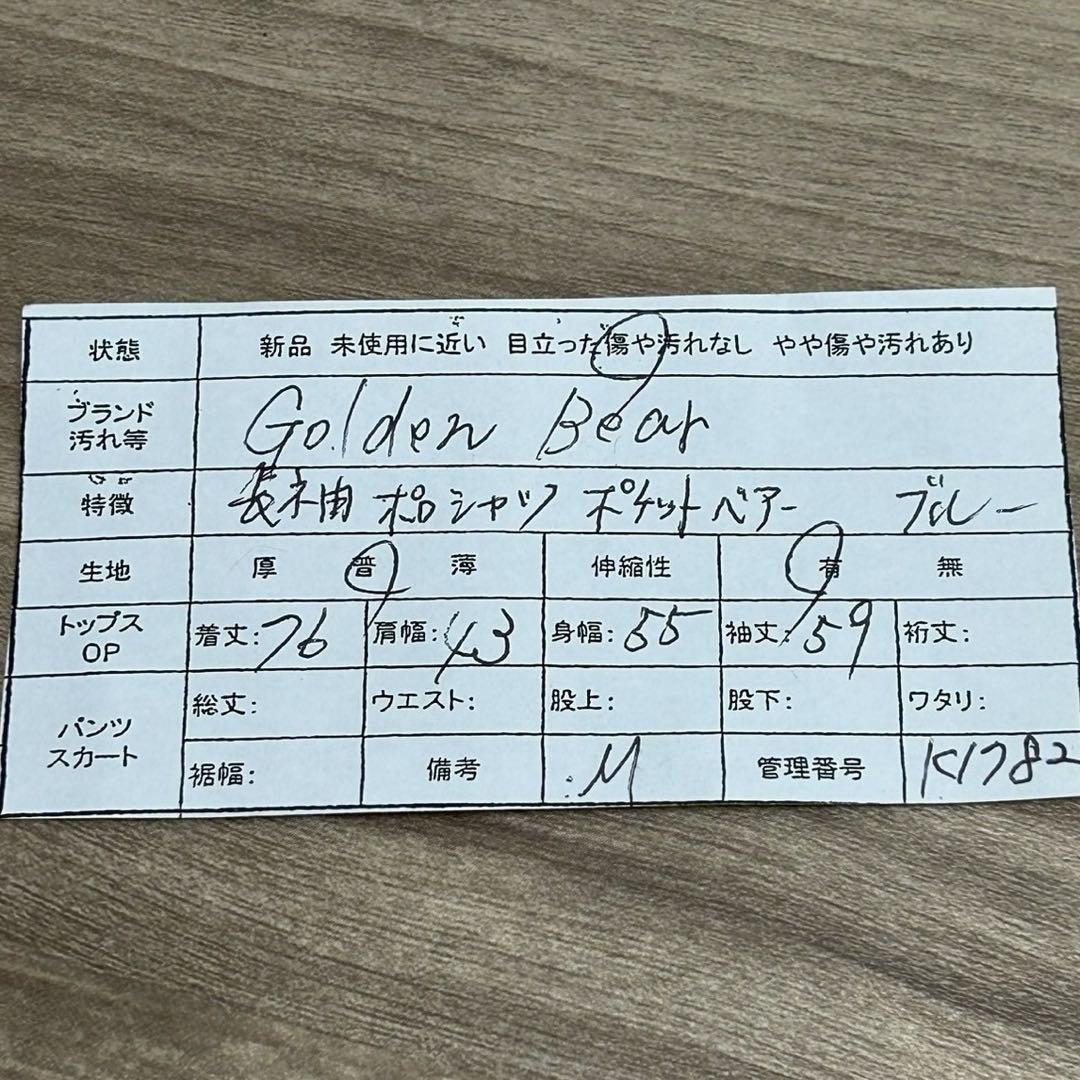 状態 新品 未使用に近い 目立った傷や汚れなし やや傷や汚れあり
ブランド
汚れ等 Golden Bear
特徴 長袖 ポロシャツ ポケットベアー ブルー
生地 厚 普 薄 伸縮性 有 無
トップス
OP 着丈:76 肩幅:43 身幅:55 袖丈:59 裄丈:
パンツ
スカート 総丈: ウエスト: 股上: 股下: ワタリ:
裾幅: 備考 M 管理番号 K1782